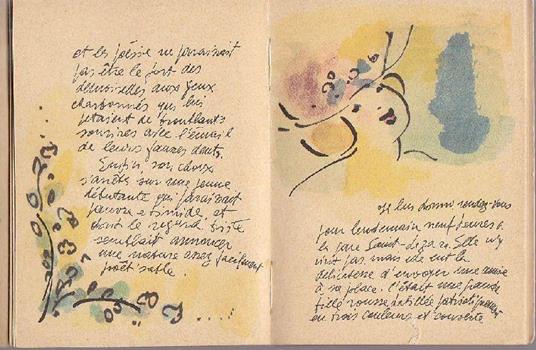 et la poésie ne paraissait
pas être le fort des
demoiselles aux yeux
charbonnés qui lui
jetaient de troublants
sourires avec l'émail
de leurs fausses dents.
Enfin, son choix
s'arrêta sur une jeune
débutante qui paraissait
pauvre et timide, et
dont le regard triste
semblait annoncer
une nature assez facilement
poétisable.
Il lui donna rendez-vous
pour lendemain neuf heures à
la gare Saint-Lazare. Elle n'y
vint pas, mais elle eut la
délicatesse d'envoyer une amie
à sa place. C'était une grande
fille rousse, habillée patriotiquement
en trois couleurs et couverte